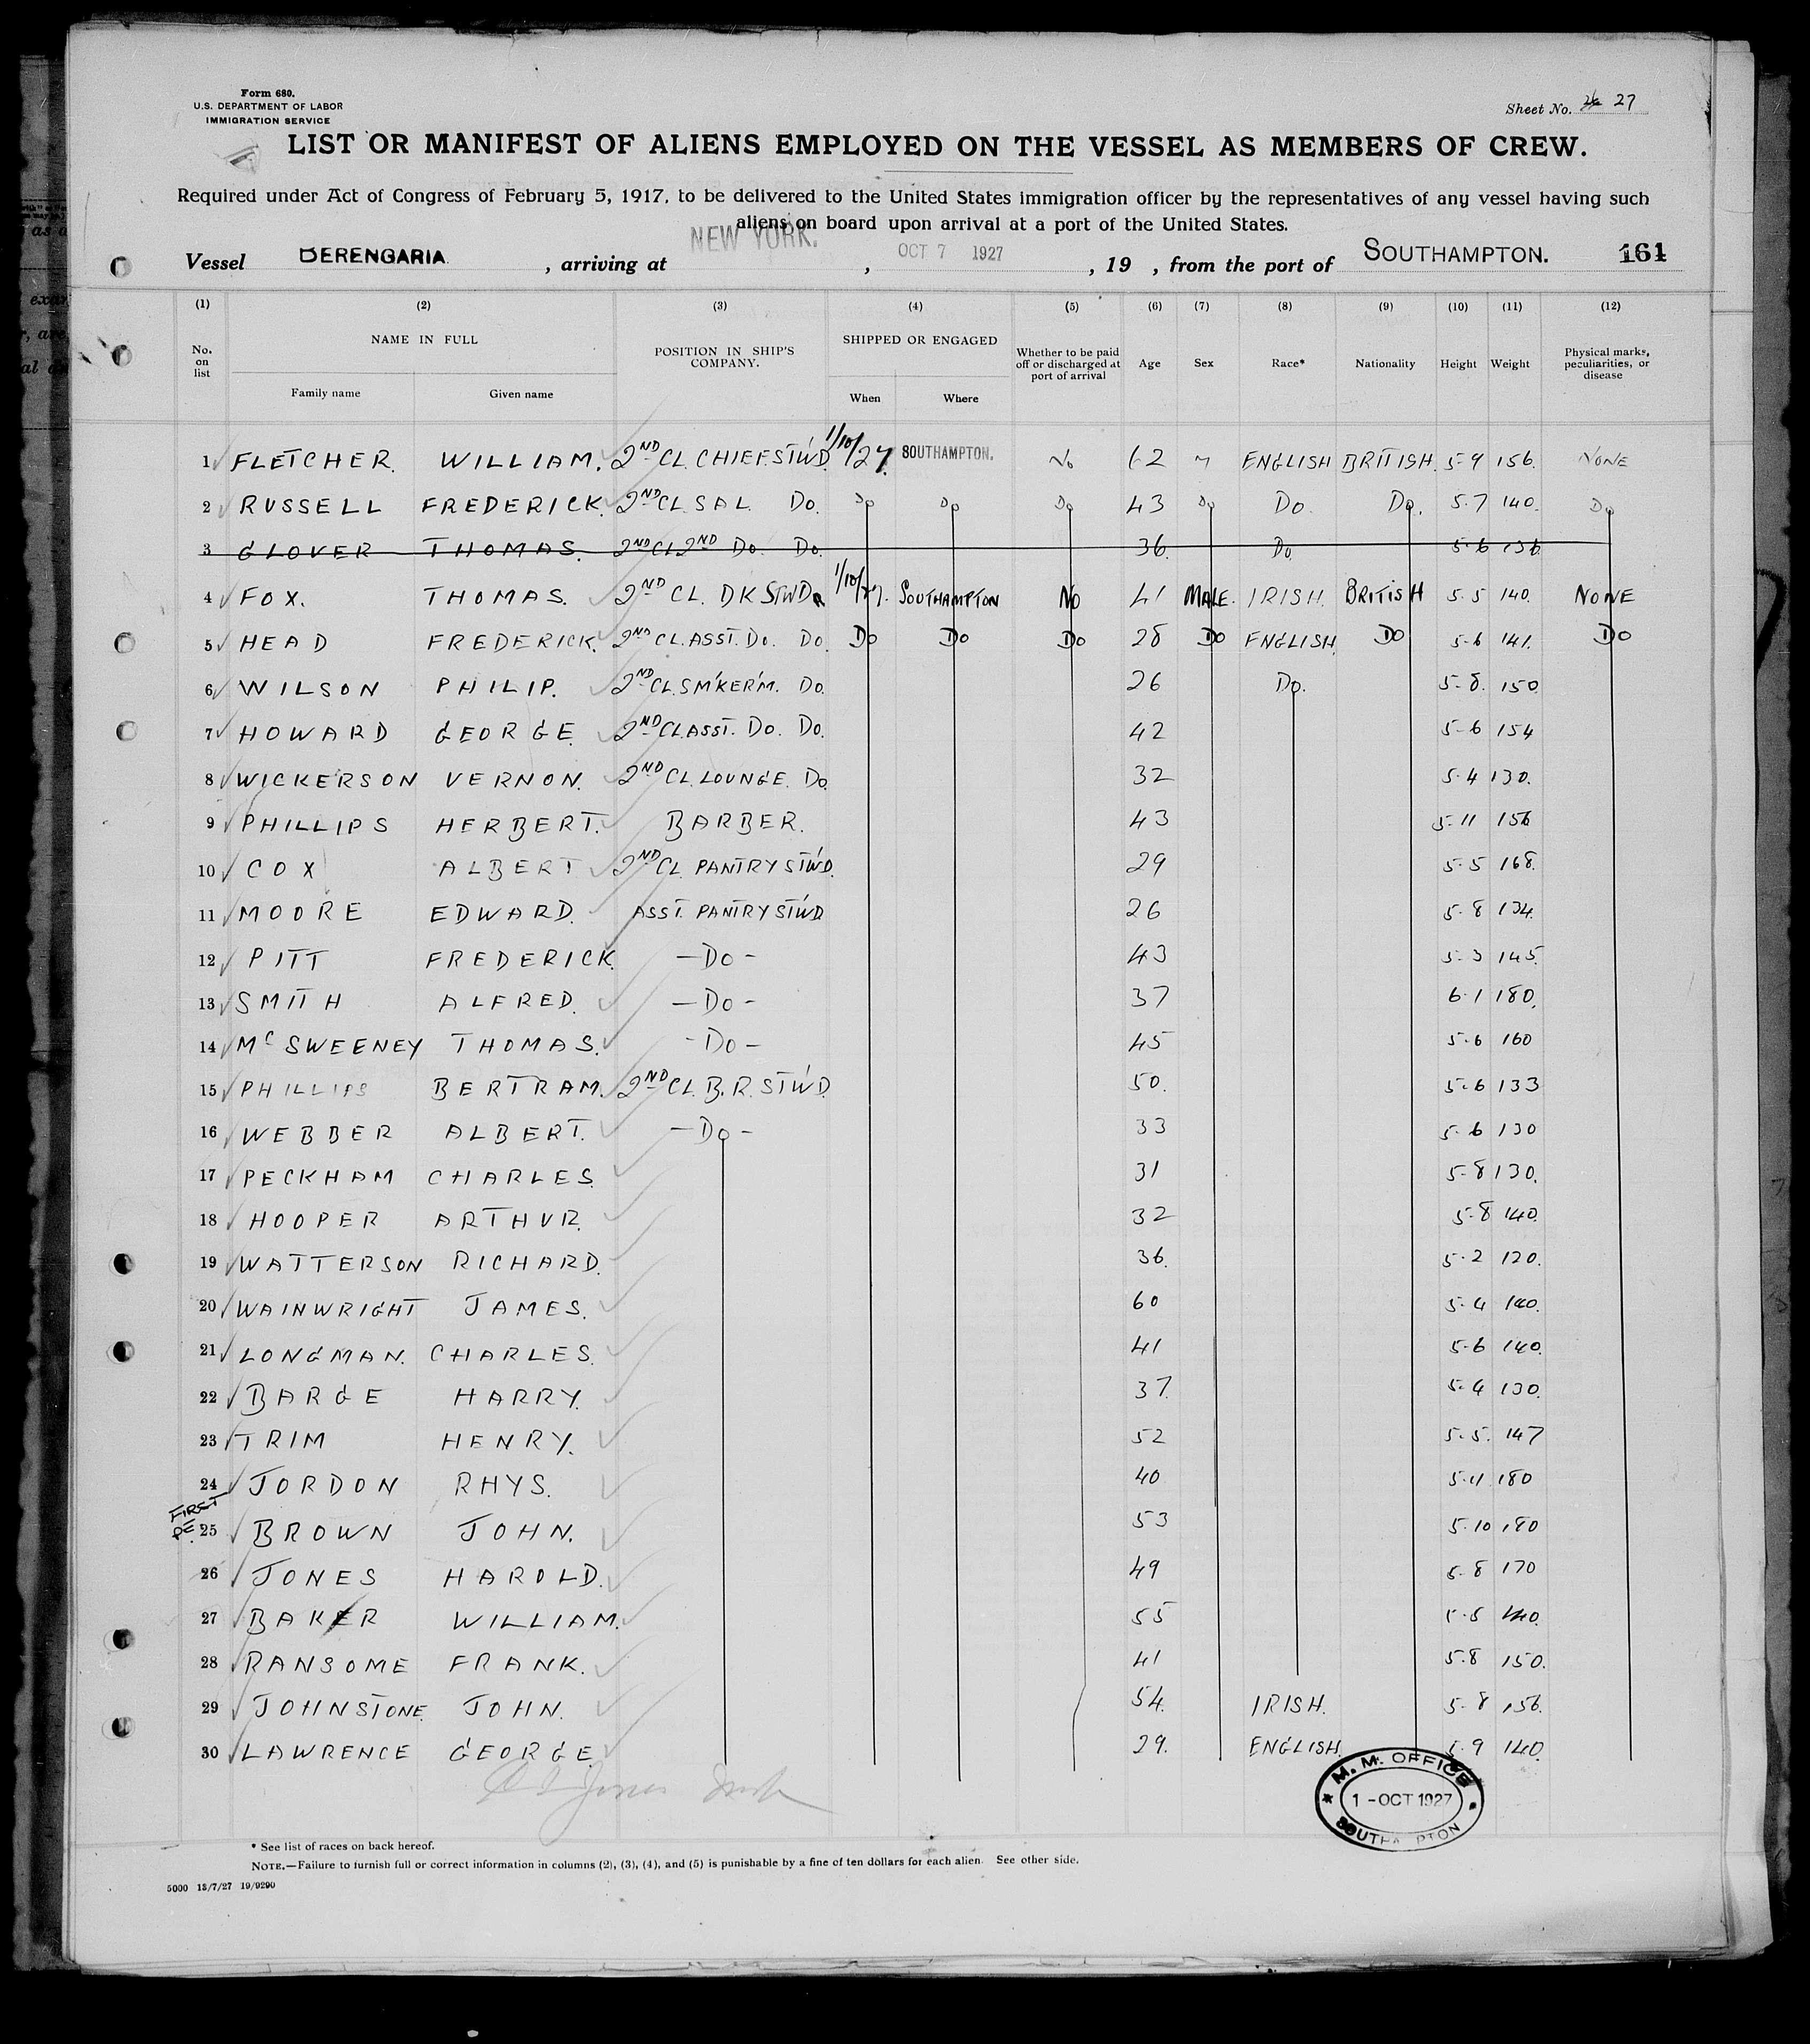 Form 680.
U.S. DEPARTMENT OF LABOR
IMMIGRATION SERVICE
Sheet No. 27
LIST OR MANIFEST OF ALIENS EMPLOYED ON THE VESSEL AS MEMBERS OF CREW.
Required under Act of Congress of February 5, 1917, to be delivered to the United States immigration officer by the representatives of any vessel having such
aliens on board upon arrival at a port of the United States.
Vessel BERENGARIA , arriving at NEW YORK. , OCT 7 1927 , 19 , from the port of SOUTHAMPTON. 161
(1) (2) (3) (4) (5) (6) (7) (8) (9) (10) (11) (12)
No. on list NAME IN FULL Family name Given name POSITION IN SHIP'S COMPANY. SHIPPED OR ENGAGED When Where Whether to be paid off or discharged at port of arrival Age Sex Race* Nationality Height Weight Physical marks, peculiarities, or disease
1 FLETCHER. WILLIAM. 2ND CL. CHIEF STWD. 1/10/27. SOUTHAMPTON. No 62 M ENGLISH BRITISH. 5-9 156. NONE
2 RUSSELL FREDERICK. 2ND CL. SAL. Do. Do Do Do 43 Do Do. Do. 5-7 140. Do
3 GLOVER THOMAS. 2ND CL 2ND Do. Do. 36. Do 5-6 136
4 FOX. THOMAS. 2ND CL. DK STWD 1/10/27. SOUTHAMPTON No 41 MALE. IRISH. BRITISH 5-5 140. NONE
5 HEAD FREDERICK. 2ND CL. ASST. Do. Do. Do Do Do 28 Do ENGLISH. Do 5-6 141. Do
6 WILSON PHILIP. 2ND CL. SM'KE R'M. Do. 26 Do. 5-8. 150.
7 HOWARD GEORGE. 2ND CL ASST. Do. Do. 42 5-6 154
8 WICKERSON VERNON. 2ND CL. LOUNGE. Do. 32 5-4 130.
9 PHILLIPS HERBERT. BARBER. 43 5-11 156
10 COX ALBERT 2ND CL. PANTRY STWD. 29 5-5 168.
11 MOORE EDWARD. ASST. PANTRY STWD 26 5-8 134.
12 PITT FREDERICK. -Do- 43 5-3 145.
13 SMITH ALFRED. -Do- 37 6-1 180.
14 McSWEENEY THOMAS. -Do- 45 5-6 160
15 PHILLIPS BERTRAM. 2ND CL. B.R. STWD. 50. 5-6 133
16 WEBBER ALBERT. -Do- 33 5-6 130
17 PECKHAM CHARLES. 31 5-8 130.
18 HOOPER ARTHUR. 32 5-8 140.
19 WATTERSON RICHARD. 36. 5-2 120.
20 WAINWRIGHT JAMES. 60 5-4 140.
21 LONGMAN. CHARLES. 41 5-6 140.
22 BARGE HARRY. 37. 5-4 130.
23 TRIM HENRY. 52 5-5. 147
24 JORDON RHYS. 40 5-11 180
FIRST
25 BROWN JOHN. 53 5-10 180
26 JONES HAROLD. 49 5-8 170
27 BAKER WILLIAM. 55 5-5 140.
28 RANSOME FRANK. 41 5-8 150.
29 JOHNSTONE. JOHN. 54. IRISH. 5-8 156.
30 LAWRENCE GEORGE. 29. ENGLISH. 5-9 140.
M. M. OFFICE
1 - OCT 1927
SOUTHA PTON
* See list of races on back hereof.
NOTE.—Failure to furnish full or correct information in columns (2), (3), (4), and (5) is punishable by a fine of ten dollars for each alien. See other side.
5000 13/7/27 19/9290